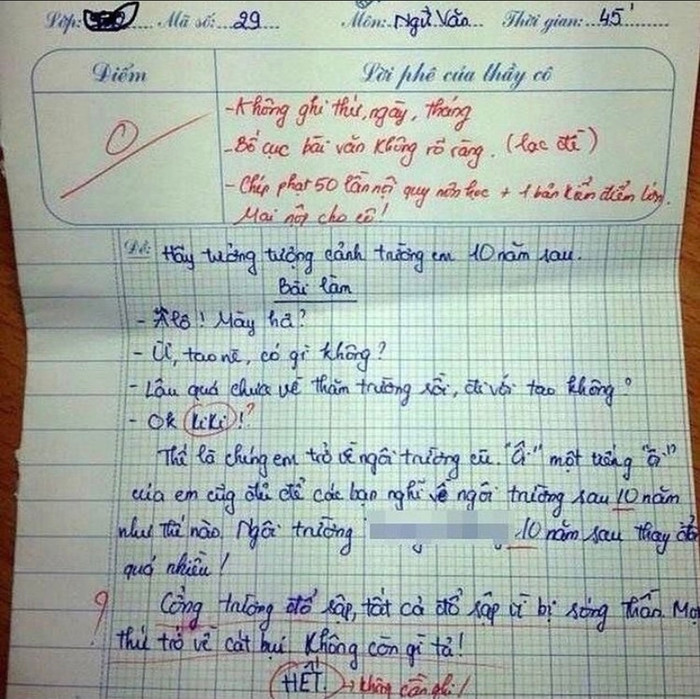 Lớp: Mã số: 29 Môn: Ngữ Văn Thời gian: 45'
Điểm Lời phê của thầy cô
0
- Không ghi thứ, ngày, tháng
- Bố cục bài văn không rõ ràng. (lạc đề)
- Chép phạt 50 lần nội quy môn học + 1 bản kiểm điểm lớn.
Mai nộp cho cô!
Đề: Hãy tưởng tượng cảnh trường em 10 năm sau.
Bài làm
- Alô! Mày hả?
- Ừ, tao nè, có gì không?
- Lâu quá chưa về thăm trường rồi, đi với tao không?
- Ok kiki!?
Thế là chúng em trở về ngôi trường cũ. "Â-" một tiếng "â-"
của em cũg đủ để các bạn nghĩ về ngôi trường sau 10 năm
như thế nào. Ngôi trường 10 năm sau thay đổi
quá nhiều!
? Cổng trường đổ sập, tất cả đổ sập vì bị sóng thần. Mọi
thứ trở về cát bụi. Không còn gì tả!
HẾT. → không cần ghi!